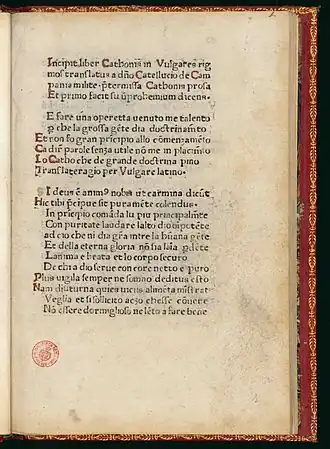 Incipit.liber Cathonis in Vulgares rig
mos translatus a dño Catellucio de Cam
pania milite. p̃termissa Cathonis prosa
Et primo facit suũ prohemium dicens.
E fare una operetta venuto me talento
ꝑ che la grossa gẽte dia doctrinamẽto
Et non fo gran prĩcipio allo comenzamẽto
Ca dir parole senza utile nõ me in placimẽto
Lo Catho che de grande doctrina pino
Translateragio per Vulgare latino.
SI deus ẽ animꝰ nobis ut carmina dicũt
Hic tibi p̃cipue sit pura mẽte colendus.
In prĩcipio comãda lu piu principalmẽte
Con puritate laudare lalto dio oĩpotẽte
ad cio che ni dia gr̃a intra la hũana gẽte
Et della eterna gloria nõ sia laĩa ꝑdẽte
Lanima e beata et lo corpo securo
De chi a dio serue con core netto e puro
Plus vigila semper ne somno deditus esto
Nam diuturna quies uiciis alimẽta miñstrat
Veglia et si sollicito aczo che sse cõuene
Nõ essere dormiglioso ne lẽto a fare bene